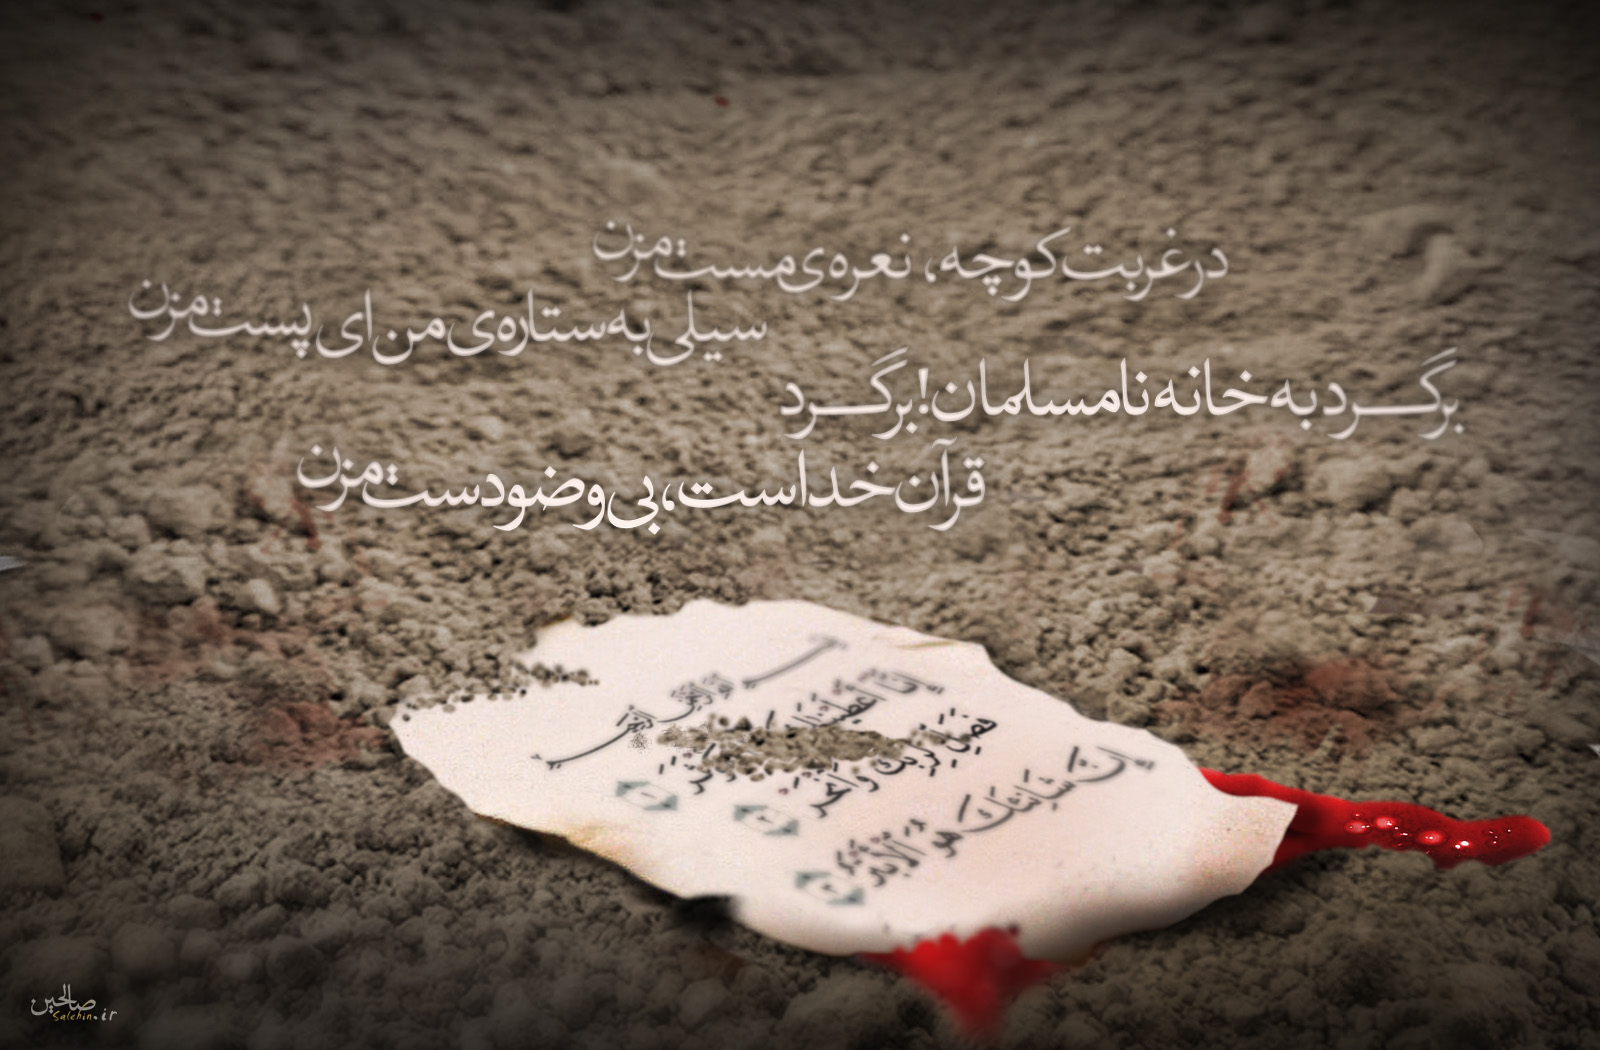 در غربت کوچه، نعره‌ی مست مزن
سیلی به ستاره‌ی من ای پست مزن
برگـــرد به خانه نامسلمان! برگـــرد
قرآن خداست، بی وضو دست مزن
بسم الله الرحمن الرحیم
إِنَّا أَعْطَيْنَاكَ
فَصَلِّ لِرَبِّكَ وَانْحَرْ
إِنَّ شَانِئَكَ هُوَ الْأَبْتَرُ
صالحین
Salehin.ir